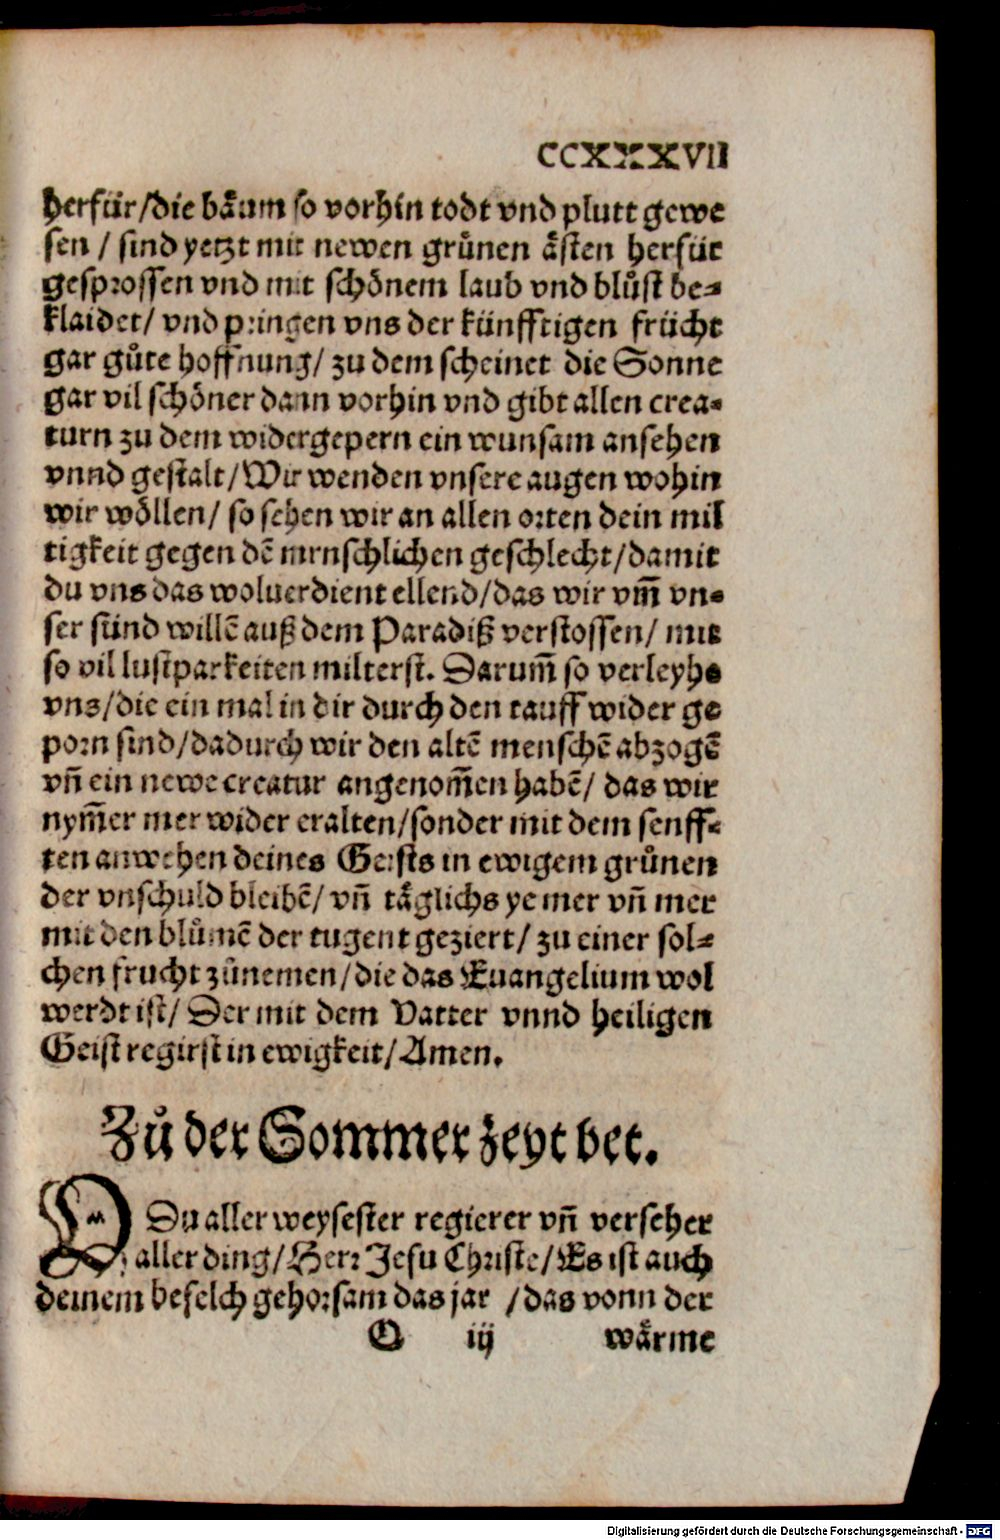 CCXXXVII
herfür/die baͤum so vorhin todt vnd plutt gewe
sen / sind yetzt mit newen gruͤnen aͤsten herfür
gesprossen vnd mit schoͤnem laub vnd bluͦst be⸗
klaidet/ vnd pringen vns der künfftigen frücht
gar guͦte hoffnung/ zu dem scheinet die Sonne
gar vil schoͤner dann vorhin vnd gibt allen crea⸗
turn zu dem widergepern ein wunsam ansehen
vnnd gestalt/Wir wenden vnsere augen wohin
wir woͤllen/ so sehen wir an allen orten dein mil
tigkeit gegen dē mrnschlichen geschlecht/damit
du vns das woluerdient ellend/das wir vm̄ vn⸗
ser sünd willē auß dem Paradiß verstossen/ mit
so vil lustparkeiten milterst. Darum̄ so verleyhe
vns/die ein mal in dir durch den tauff wider ge
porn sind/dadurch wir den altē menschē abzogē
vn̄ ein newe creatur angenom̄en habē/ das wir
nym̄er mer wider eralten/sonder mit dem senff⸗
ten anwehen deines Geists in ewigem gruͤnen
der vnschuld bleibē/ vn̄ taͤglichs ye mer vn̄ mer
mit den bluͦmē der tugent geziert/ zu einer sol⸗
chen frucht zuͦnemen/die das Euangelium wol
werdt ist/ Der mit dem Vatter vnnd heiligen
Geist regirst in ewigkeit/Amen.
Zuͦ der Sommer zeyt bet.
O Du aller weysester regierer vn̄ verseher
aller ding/Herr Jesu Christe/Es ist auch
deinem befelch gehorsam das jar /das vonn der
O iij waͤrme
Digitalisierung gefördert durch die Deutsche Forschungsgemeinschaft - DFG